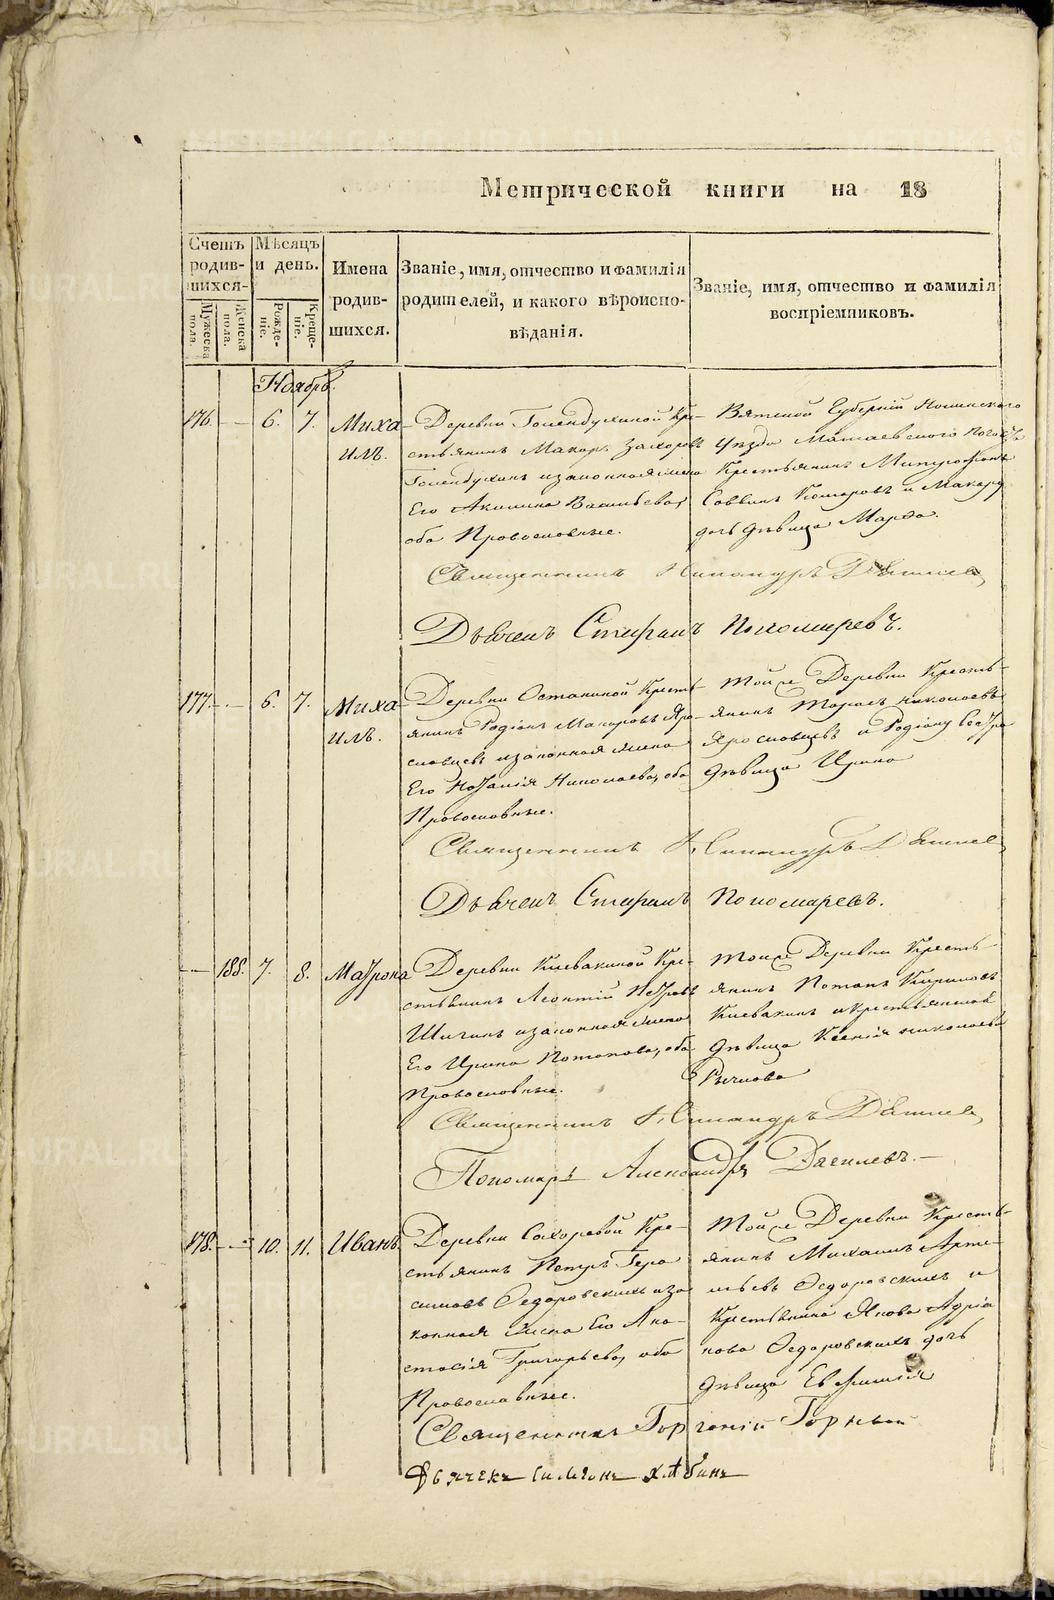 Метрической книги на 18
Счетъ родив-шихся.
Мужеска пола.
Женска пола.
Мѣсяцъ и день.
Рожде-ніе.
Креще-ніе.
Имена родив-шихся.
Званіе, имя, отчество и фамилія родителей, и какого вѣроиспо-вѣданія.
Званіе, имя, отчество и фамилія воспріемниковъ.
Ноябрь.
176. — 6. 7. Миха-
илъ.
Деревни Голендухиной Кре-
стьянинъ Макаръ Захаровъ
Голендухинъ и законная жена
Его Акилина Васильева,
оба Православные.
Вятской Губерніи Нолинскаго
Уѣзда
Крестьянинъ Митрофанъ
Саввинъ и Макару
дочь дѣвица Марѳа.
Священникъ Никандръ
Дьячекъ Стефанъ Пономаревъ.
177. — 6. 7. Миха
илъ.
Деревни Останиной Кресть-
янинъ Родіонъ Макаровъ Яро-
славцевъ и законная жена
Его Наталія Николаева, оба
Православные.
Той же Деревни Кресть-
янинъ Тарасъ Николаевъ
Ярославцевъ и Родіону Сестра
дѣвица Ирина
Священникъ Никандръ
Дьячекъ Стефанъ Пономаревъ.
— 188. 7. 8. Матрона
Деревни Клевакиной Кре-
стьянинъ Леонтій Петровъ
Шигинъ и законная жена
Его Ирина Потапова, оба
Православные.
Той же Деревни Кресть-
янинъ Потапъ Кириловъ
Клевакинъ и крестьянская
дѣвица Ксенія Николаева
Рычкова
Священникъ Никандръ
Пономарь Александръ Дягилевъ. —
178. — 10. 11. Иванъ
Деревни Сохаревой Кре-
стьянинъ Петръ Гера
симовъ Ѳедоровскихъ и за
конная жена Его Ана-
стасія Григорьева, оба
Православные.
Той же Деревни Кресть-
янинъ Михаилъ Арте-
мьевъ Ѳедоровскихъ и
Крестьянина Якова Адріа
нова Ѳедоровскихъ дочь
дѣвица Евфимія
Священникъ Горгоній Горный
Дьячекъ Симеонъ Хлѣбинъ
METRIKI.GASO-URAL.RU